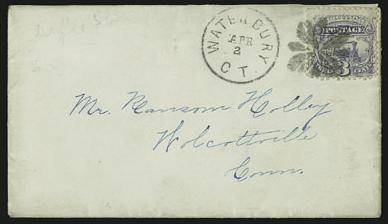 WATERBURY
APR
2
CT.
POSTAGE
3
Mr. Ransom Holley
Wolcottville
Conn.